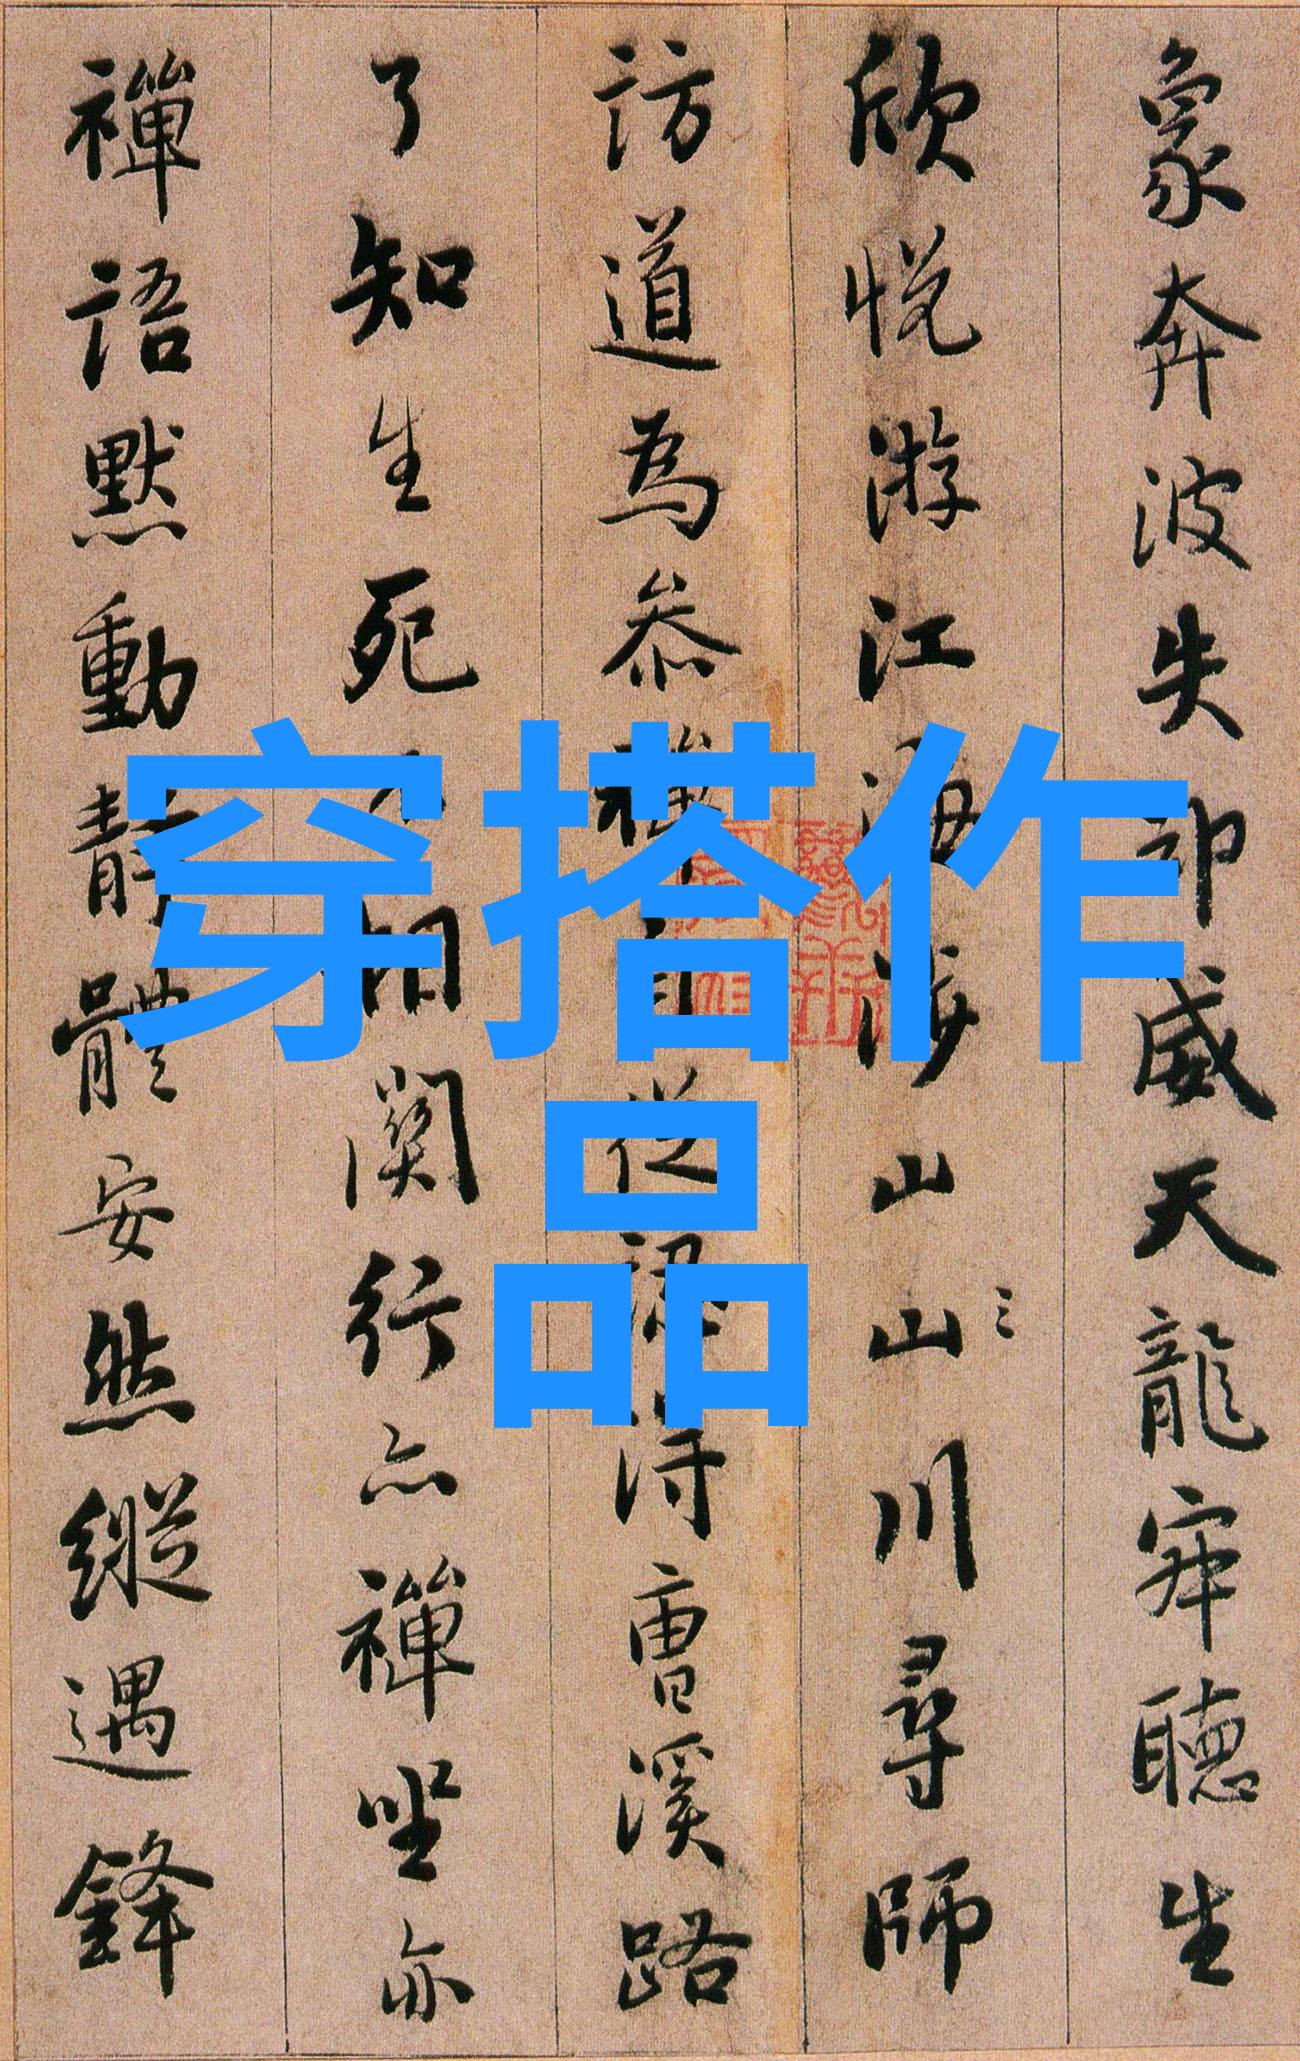 象奔波失却威天龍寂聽生
欣悅游江海涉山山川尋師
訪道為叅禪自從認得曹溪路
了知生死相關行亦禪坐亦
禪語默動靜體安然縱遇鋒
穿搭作
品